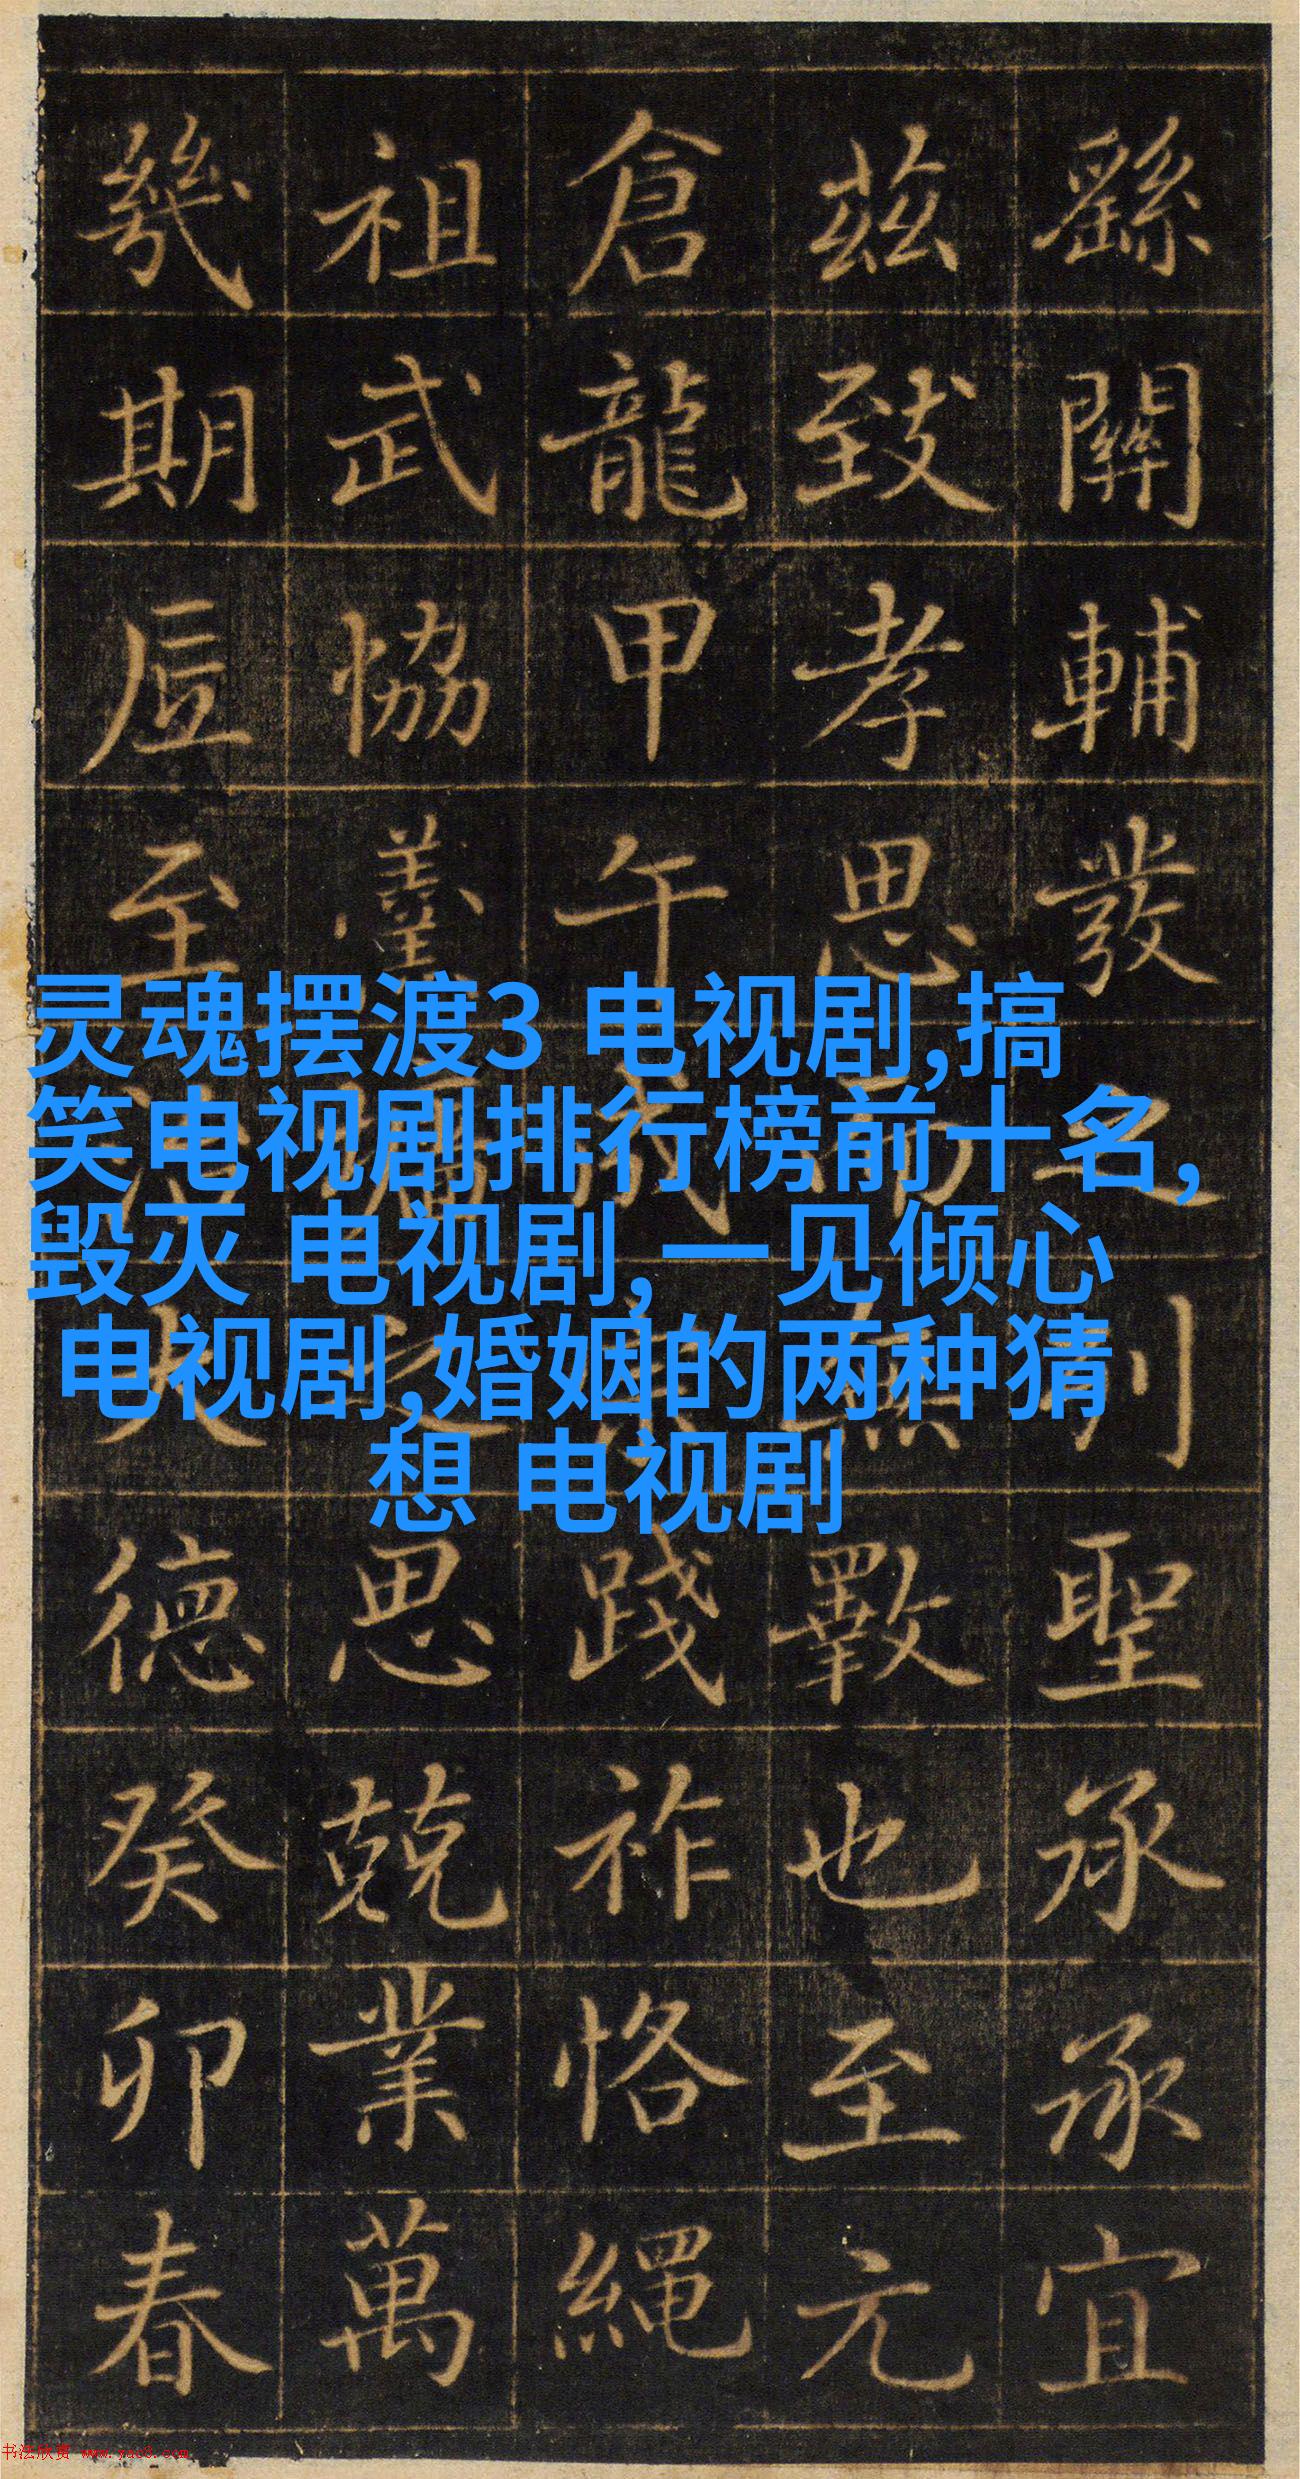 繇關輔發之列聖承承宜
茲致孝思而無斁也至元
倉龍甲午成宗踐祚恪繩
祖武恊羹墻之思兢業萬
幾期底至治大德癸卯春
灵魂摆渡3 电视剧,搞
笑电视剧排行榜前十名,
毁灭 电视剧,一见倾心
电视剧,婚姻的两种猜
想 电视剧
书法欣赏 www.yac8.com